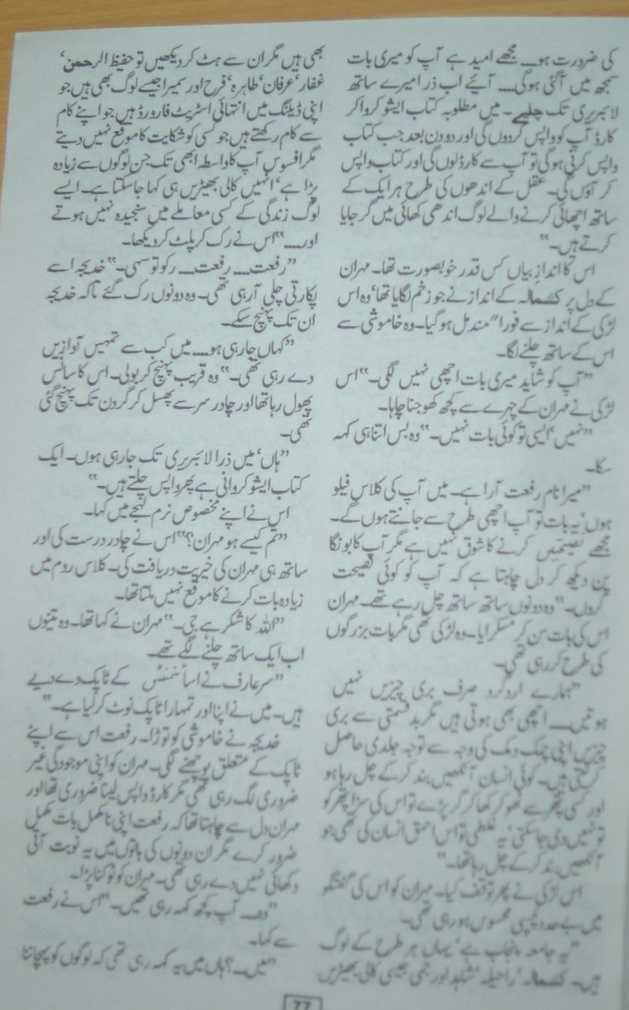 کی ضرورت ہو۔۔۔۔ مجھے امید ہے آپ کو میری بات
سمجھ میں آ گئی ہوگی۔۔۔۔ آئیے اب ذرا میرے ساتھ
لائبریری تک چلیے۔ میں مطلوبہ کتاب ایشو کروا کر
کارڈ آپ کو واپس کردوں گی اور دو دن بعد جب کتاب
واپس کرنی ہوگی تو آپ سے کارڈ لوں گی اور کتاب واپس
کر آؤں گی۔ عقل کے اندھوں کی طرح ہر ایک کے
ساتھ اچھائی کرنے والے لوگ اندھی کھائی میں گر جایا
کرتے ہیں۔"
اس کا انداز بیاں کس قدر خوبصورت تھا۔ مہران
کے دل پر کشمالہ کے انداز نے جو زخم لگایا تھا' وہ اس
لڑکی کے انداز سے فورا" مندمل ہو گیا۔ وہ خاموشی سے
اس کے ساتھ چلنے لگا۔
"آپ کو شاید میری بات اچھی نہیں لگی۔" اس
لڑکی نے مہران کے چہرے سے کچھ کھوجنا چاہا۔
"نہیں' ایسی تو کوئی بات نہیں۔" وہ بس اتنا ہی کہہ
سکا۔
"میرا نام رفعت آرا ہے۔ میں آپ کی کلاس فیلو
ہوں' یہ بات تو آپ اچھی طرح سے جانتے ہوں گے۔
مجھے نصیحتیں کرنے کا شوق نہیں ہے مگر آپ کا بونگا
پن دیکھ کر دل چاہتا ہے کہ آپ کو کوئی نصیحت
کروں۔" وہ دونوں ساتھ ساتھ چل رہے تھے۔ مہران
اس کی بات سن کر مسکرایا۔ وہ لڑکی تھی مگر بات بزرگوں
کی طرح کر رہی تھی۔
"ہمارے ارد گرد صرف بری چیزیں نہیں
ہوتیں۔۔۔۔ اچھی بھی ہوتی ہیں مگر بد قسمتی سے بری
چیزیں اپنی چمک دمک کی وجہ سے توجہ جلدی حاصل
کرلیتی ہیں۔ کوئی انسان آنکھیں بند کرکے چل رہا ہو
اور کسی پتھر سے ٹھوکر کھا کر گر پڑے تو اس کی سزا پتھر کو
تو نہیں دی جاسکتی' یہ غلطی تو اس احمق انسان کی تھی جو
آنکھیں بند کرکے چل رہا تھا۔"
اس لڑکی نے پھر توقف کیا۔ مہران کو اس کی گفتگو
میں بے حد دلچسپی محسوس ہو رہی تھی۔
"یہ جامعہ پنجاب ہے' یہاں ہر طرح کے لوگ
ہیں۔ کشمالہ' راحیلہ' شاہد اور نجمی جیسی کالی بھیڑیں
بھی ہیں مگر ان سے ہٹ کر دیکھیں تو حفیظ الرحمن'
غفار' عرفان' طاہرہ' فرح اور سمیرا جیسے لوگ بھی ہیں جو
اپنی ڈیلنگ میں انتہائی اسٹریٹ فارورڈ ہیں جو اپنے کام
سے کام رکھتے ہیں جو کسی کو شکایت کا موقع نہیں دیتے
مگر افسوس آپ کا واسطہ ابھی تک جن لوگوں سے زیادہ
پڑا ہے' انہیں کالی بھیڑیں ہی کہا جاسکتا ہے۔ ایسے
لوگ زندگی کے کسی معاملے میں سنجیدہ نہیں ہوتے
اور۔۔۔۔" اس نے رک کر پلٹ کر دیکھا۔
"رفعت۔۔۔۔ رفعت۔۔۔۔ رکو تو سہی۔" خدیجہ اسے
پکارتی چلی آ رہی تھی۔ وہ دونوں رک گئے تاکہ خدیجہ
ان تک پہنچ سکے۔
"کہاں جا رہی ہو۔۔۔۔ میں کب سے تمہیں آوازیں
دے رہی تھی۔" وہ قریب پہنچ کر بولی۔ اس کا سانس
پھول رہا تھا اور چادر سر سے پھسل کر گردن تک پہنچ گئی
تھی۔
"ہاں' میں ذرا لائبریری تک جا رہی ہوں۔ ایک
کتاب ایشو کروانی ہے پھر واپس چلتے ہیں۔"
اس نے اپنے مخصوص نرم لہجے میں کہا۔
"تم کیسے ہو مہران؟" اس نے چادر درست کی اور
ساتھ ہی مہران کی خیریت دریافت کی۔ کلاس روم میں
زیادہ بات کرنے کا موقع نہیں ملتا تھا۔
"اللہ کا شکر ہے جی۔" مہران نے کہا تھا۔ وہ تینوں
اب ایک ساتھ چلنے لگے تھے۔
"سر عارف نے اسائنمنٹس کے ٹاپک دے دیے
ہیں۔ میں نے اپنا اور تمہارا ٹاپک نوٹ کرلیا ہے۔"
خدیجہ نے خاموشی کو توڑا۔ رفعت اس سے اپنے
ٹاپک کے متعلق پوچھنے لگی۔ مہران کو اپنی موجودگی غیر
ضروری لگ رہی تھی مگر کارڈ واپس لینا ضروری تھا اور
مہران دل سے چاہتا تھا کہ رفعت اپنی نامکمل بات مکمل
ضرور کرے مگر ان دونوں کی باتوں میں یہ نوبت آتی
دکھائی نہیں دے رہی تھی۔ مہران کو ٹوکنا پڑا۔
"وہ۔۔۔ آپ کچھ کہہ رہی تھیں۔" اس نے رفعت
سے کہا۔
"میں۔۔۔؟ ہاں میں یہ کہہ رہی تھی کہ لوگوں کو پہچاننا
77